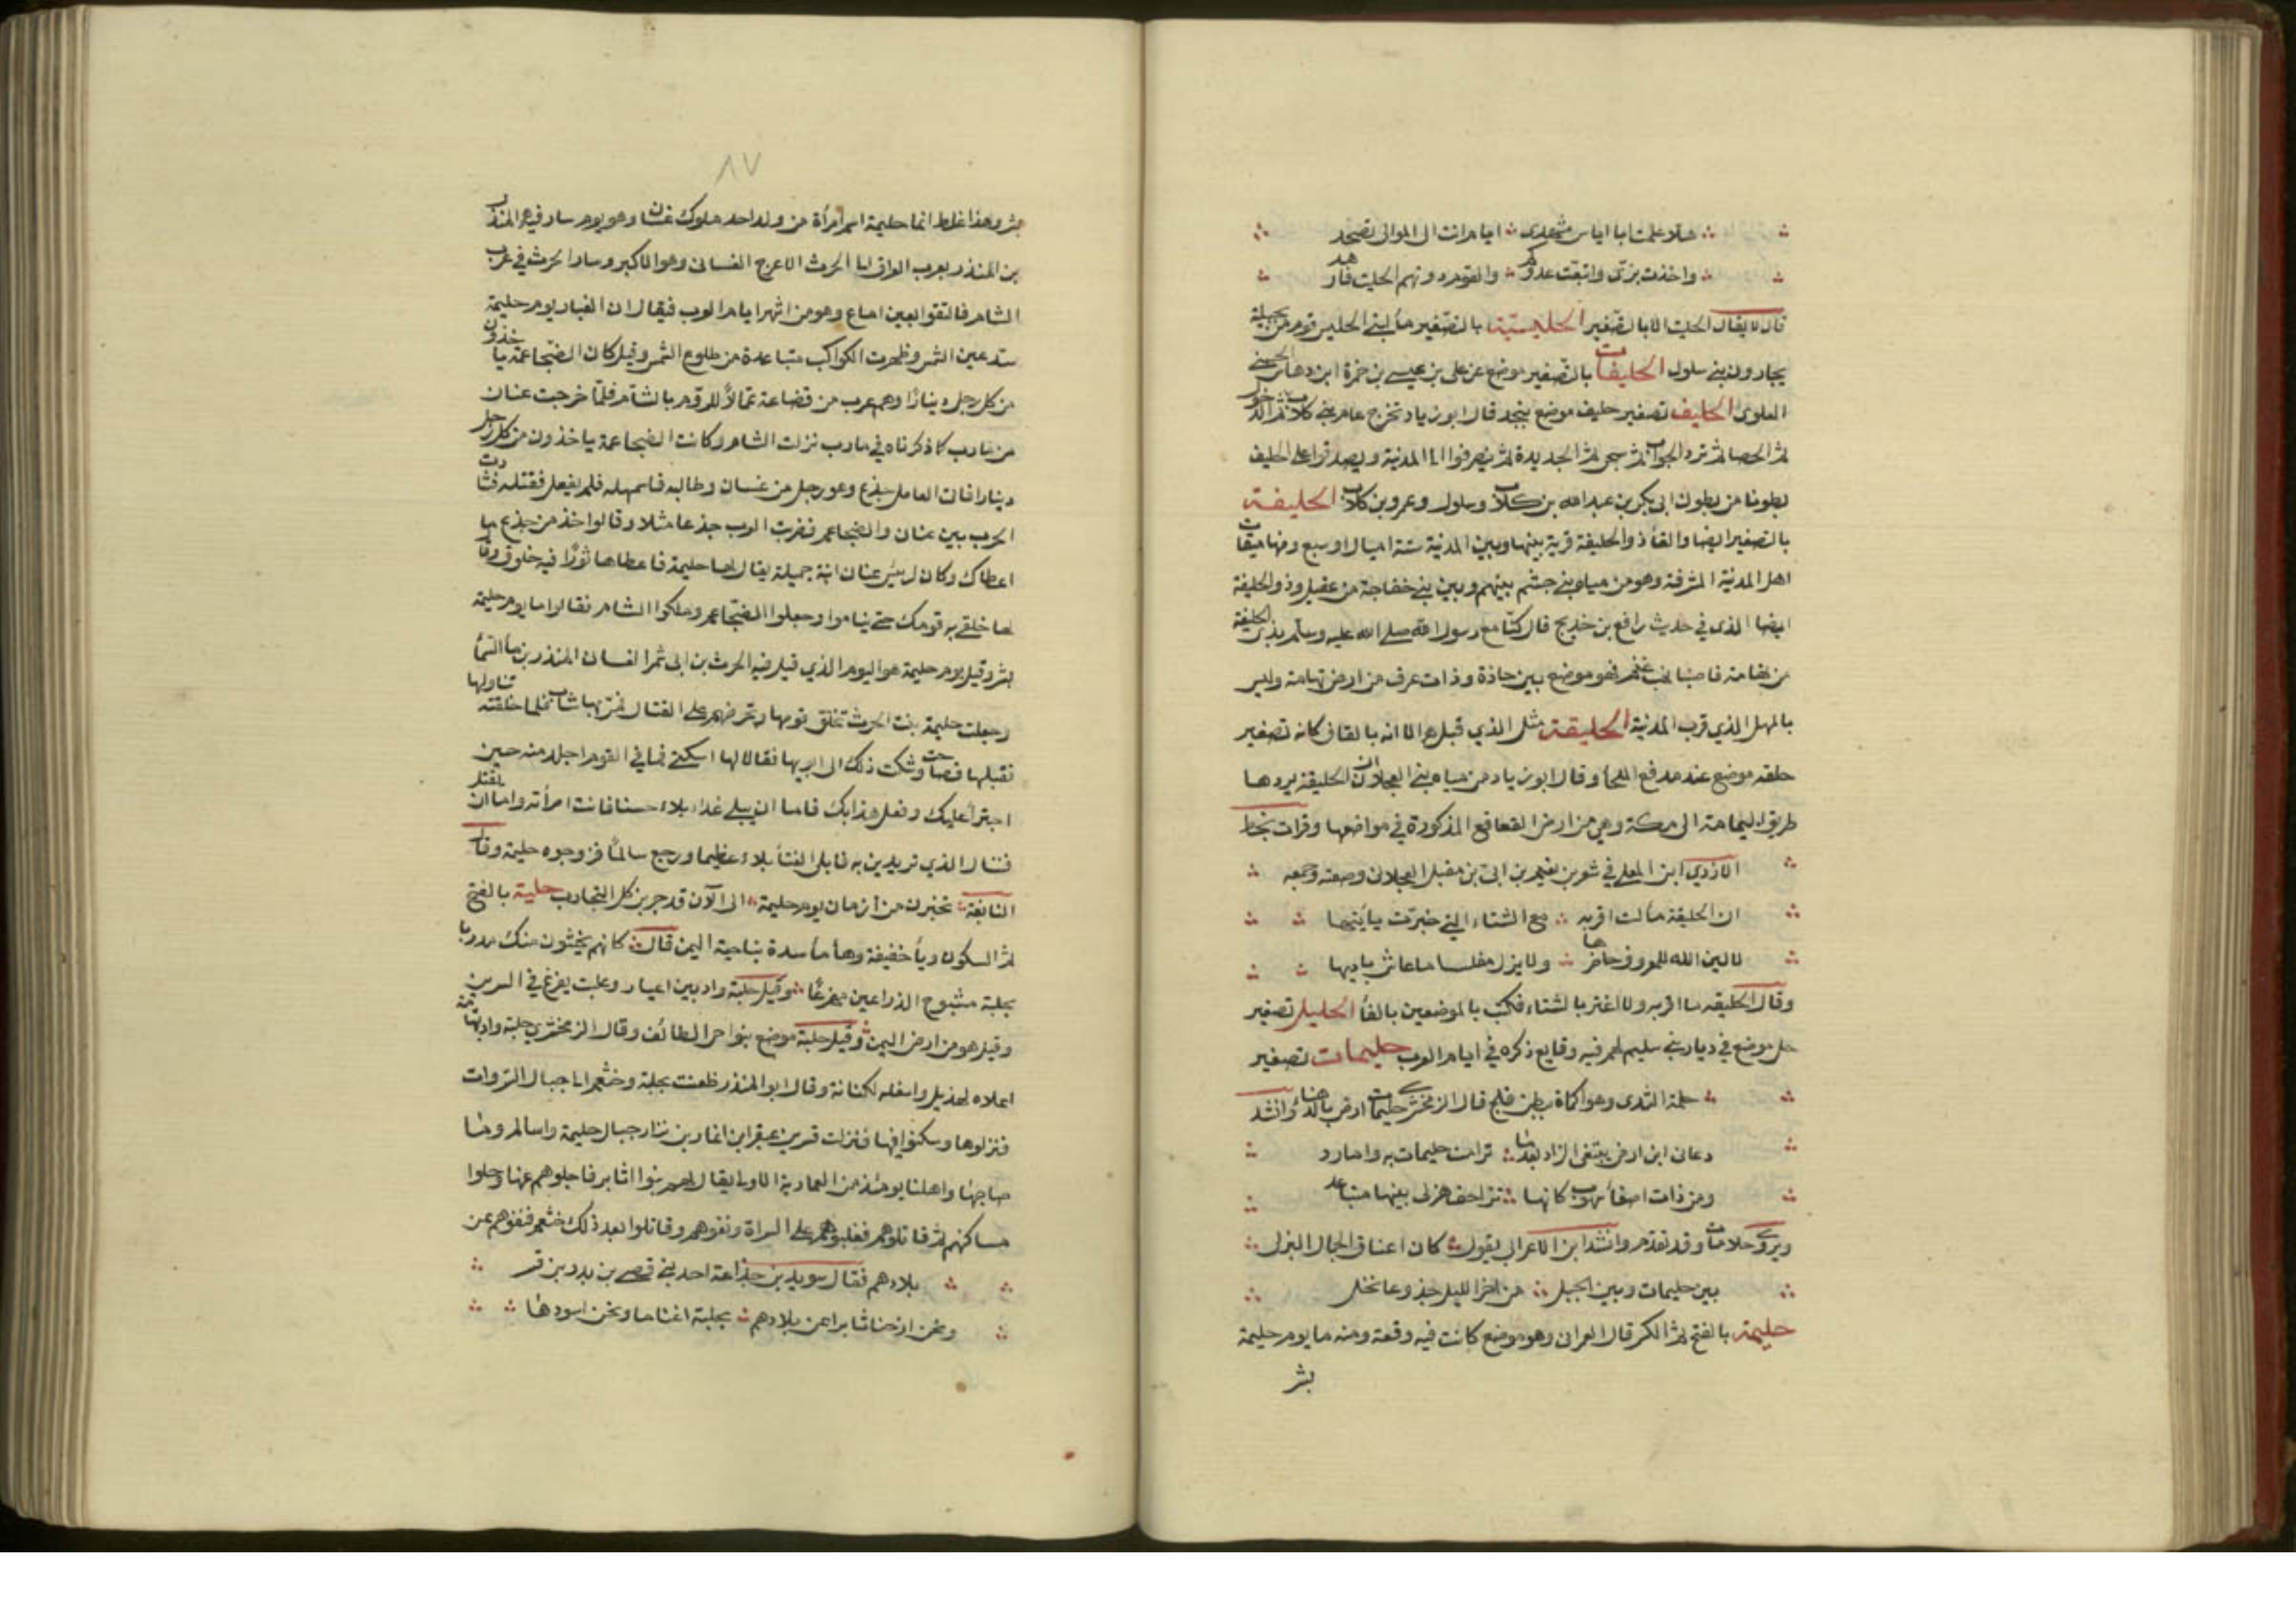 هلا علمت ابا اياس مشهدى ؞ ايام انت الى الموالى تصخد
واخذت بزى واتبعت عدوكم ؞ والقوم دونهم الحليت فارهد
قال لا يقال الحليت الا بالتصغير الحليسية بالتصغير ماء لبنى الحليس قوم من بجيلة
يجاورون بنى سلول الحليفات بالتصغير موضع عن على بن عيسى بن حمزة ابن وهاس الحسنى
العلوى الحليف تصغير حليف موضع بنجد قال ابو زياد تخرج عامر بنى كلاب ثم الدخول
ثم الحصا ثم ترد الجواب ثم سجى ثم الجديدة ثم ينصرفوا الى المدينة ويصدقوا على الحليف
بطونا من بطون ابى بكر بن عبد الله بن كلاب وسلول وعمرو بن كلاب الحليفة
بالتصغير ايضا والفاء ذو الحليفة قرية بينها وبين المدينة ستة اميال او سبع ومنها ميقات
اهل المدينة المشرفة وهو من مياه بنى جشم بينهم وبين بنى خفاجة من عقيل وذو الحليفة
ايضا الذى فى حديث رافع بن خديج قال كنا مع رسول الله صلى الله عليه وسلم بذى الحليفة
من تهامة فاصبنا نهب غنم فهو موضع بين حاذة وذات عرق من ارض تهامة وليس
بالمهل الذي قرب المدينة الحليقة مثل الذي قبله الا انه بالقاف كانه تصغير
حلقه موضع عند مدفع الملحاء وقال ابو زياد من مياه بنى العجلان الحليقة يردها
طريق اليمامة الى مكة وهى من ارض القعاقع المذكورة فى مواضعها وقرات بخط
الازدي ابن المعلى في شعر بن تميم بن ابى بن مقبل العجلانى وصنعه وجمعه
ان الحليقة ماء لست اقربه ؞ مع الشتاء التى خبرت ياتيها
لا لين الله للمعروف حاضرها ؞ ولا يزل مفلسا ما عاش باديها
وقال الحليقه ما اقربه ولا اغتر بالشتاء فكتب بالموضعين بالفاء الحليل تصغير
حل موضع في ديار بنى سليم لهم فيه وقايع ذكره في ايام العرب حليمات تصغير
حلمة الثدى وهو اكمات ببطن فلج قال الزمخشرى حليمات ارض بالدهناء وانشد
دعانى ابن ارض يبتغى الزاد بعدما ؞ ترامت حليمات به واجارد
ومن ذات اصفاء سهوب كانها ؞ تزاحف هزلى بينها متباعد
ويروى حلامات وقد تقدم وانشد ابن الاعرابى يقول ؞ كان اعناق الجمال البزل
بين حليمات وبين الجبل ؞ من اخر الليل جذوعا نخل
حليمة بالفتح ثم الكسر قال العمرانى وهو موضع كانت فيه وقعة ومنه ما يوم حليمة
بسر
٨٧
بسر وهذا غلط انما حليمة اسم امرأة من ولد احد ملوك غسان وهو يوم سار فيه المنذر
بن المنذر بعرب العراق الى الحرث الاعرج الغسانى وهو الاكبر وسار الحرث في عرب
الشام فالتقوا بعين اباغ وهو من اشهر ايام العرب فيقال ان الغبار يوم حليمة
سد عين الشمس وظهرت الكواكب متباعدة من طلوع الشمس وقيل كان الضجاعمة ياخذون
من كل رجل دينارا وهم عرب من قضاعة عمالا للروم بالشام فلما خرجت غسان
من مارب كما ذكرناه في مارب نزلت الشام وكانت الضجاعمة ياخذون من كل رجل
دينارا فاتى العامل جذع وهو رجل من غسان وطالبه فاستمهله فلم يفعل فقتله فثارت
الحرب بين غسان والضجاعم فضربت العرب جذعا مثلا وقالوا خذ من جذع ما
اعطاك وكان لرئيس غسان ابنة جميلة يقال لها حليمة فاعطاها تورا فيه خلوق وقال
لها خلقى به قومك حتى يناموا وجعلوا الضجاعم وملكوا الشام فقالوا ما يوم حليمة
بسر وقيل يوم حليمة هو اليوم الذي قيل فيه الحرث بن ابى شمر الغسانى المنذر بن ماء السماء
وجعلت حليمة بنت الحرث تخلق قومها وتحرضهم على القتال فمر بها شاب فلما خلقته تناولها
فقبلها فصاحت وشكت ذلك الى ابويها فقالا لها اسكتى فما في القوم اجلد منه حين
اجترأ عليك وفعل هذا بك فاما ان يبلى غدا بلاء حسنا فانت امرأته واما ان يقتل
فتنال الذي تريدين به فابلى الفتى بلاء عظيما ورجع سالما فزوجوه حليمة وقال
النابغة ؞ تخيرن من ازمان يوم حليمة ؞ الى الآن قد جربن كل التجارب حلية بالفتح
ثم السكون وياء خفيفة وهاء ماسدة بناحية اليمن قال ؞ كانهم يخشون منك مدربا
بحلية مشبوح الذراعين مهزعا ؞ وقيل حلية واد بين اعيار وعليب يفرغ في السرين
وقيل هو من ارض اليمن وقيل حلية موضع بنواحى الطائف وقال الزمخشري حلية واد بتهامة
اعلاه لهذيل واسفله لكنانة وقال ابو المنذر ظعنت بجلة وخثعم الى جبال السروات
فنزلوها وسكنوا فيها فنزلت قسر بن عبقر ابن انمار بن نزار جبال حليمة واسالم وما
صاحبها واهلها يومئذ من العماربة الاولى يقال لهم بنوا ثابر فاجلوهم عنها وحلوا
مساكنهم ثم قاتلوهم فغلبوهم على السراة ونفوهم وقاتلوا بعد ذلك خثعم فنفوهم عن
بلادهم فقال سويد بن جذاعة احد بنى قصى بن بدو بن قسر
ونحن ازحنا ثابرا عن بلادهم ؞ بحلية اغناما ونحن اسودها